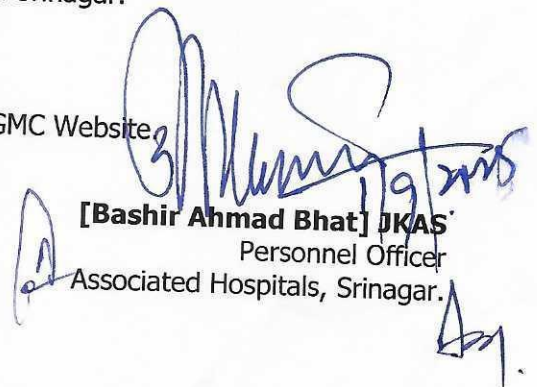 Srinagar.
GMC Website
1/9/2025
[Bashir Ahmad Bhat] JKAS
Personnel Officer
Associated Hospitals, Srinagar.